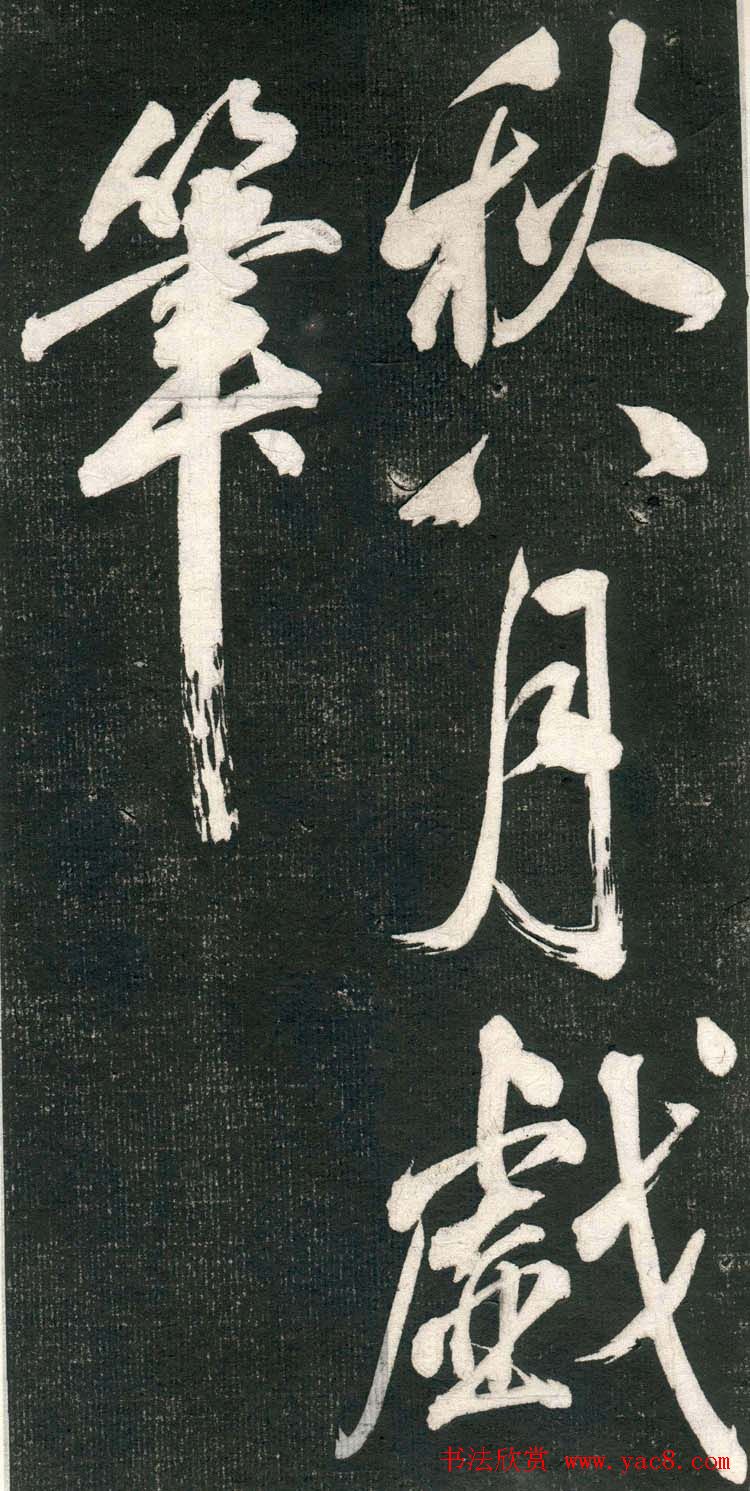 秋八月戲
筆
书法欣赏 www.yac8.com